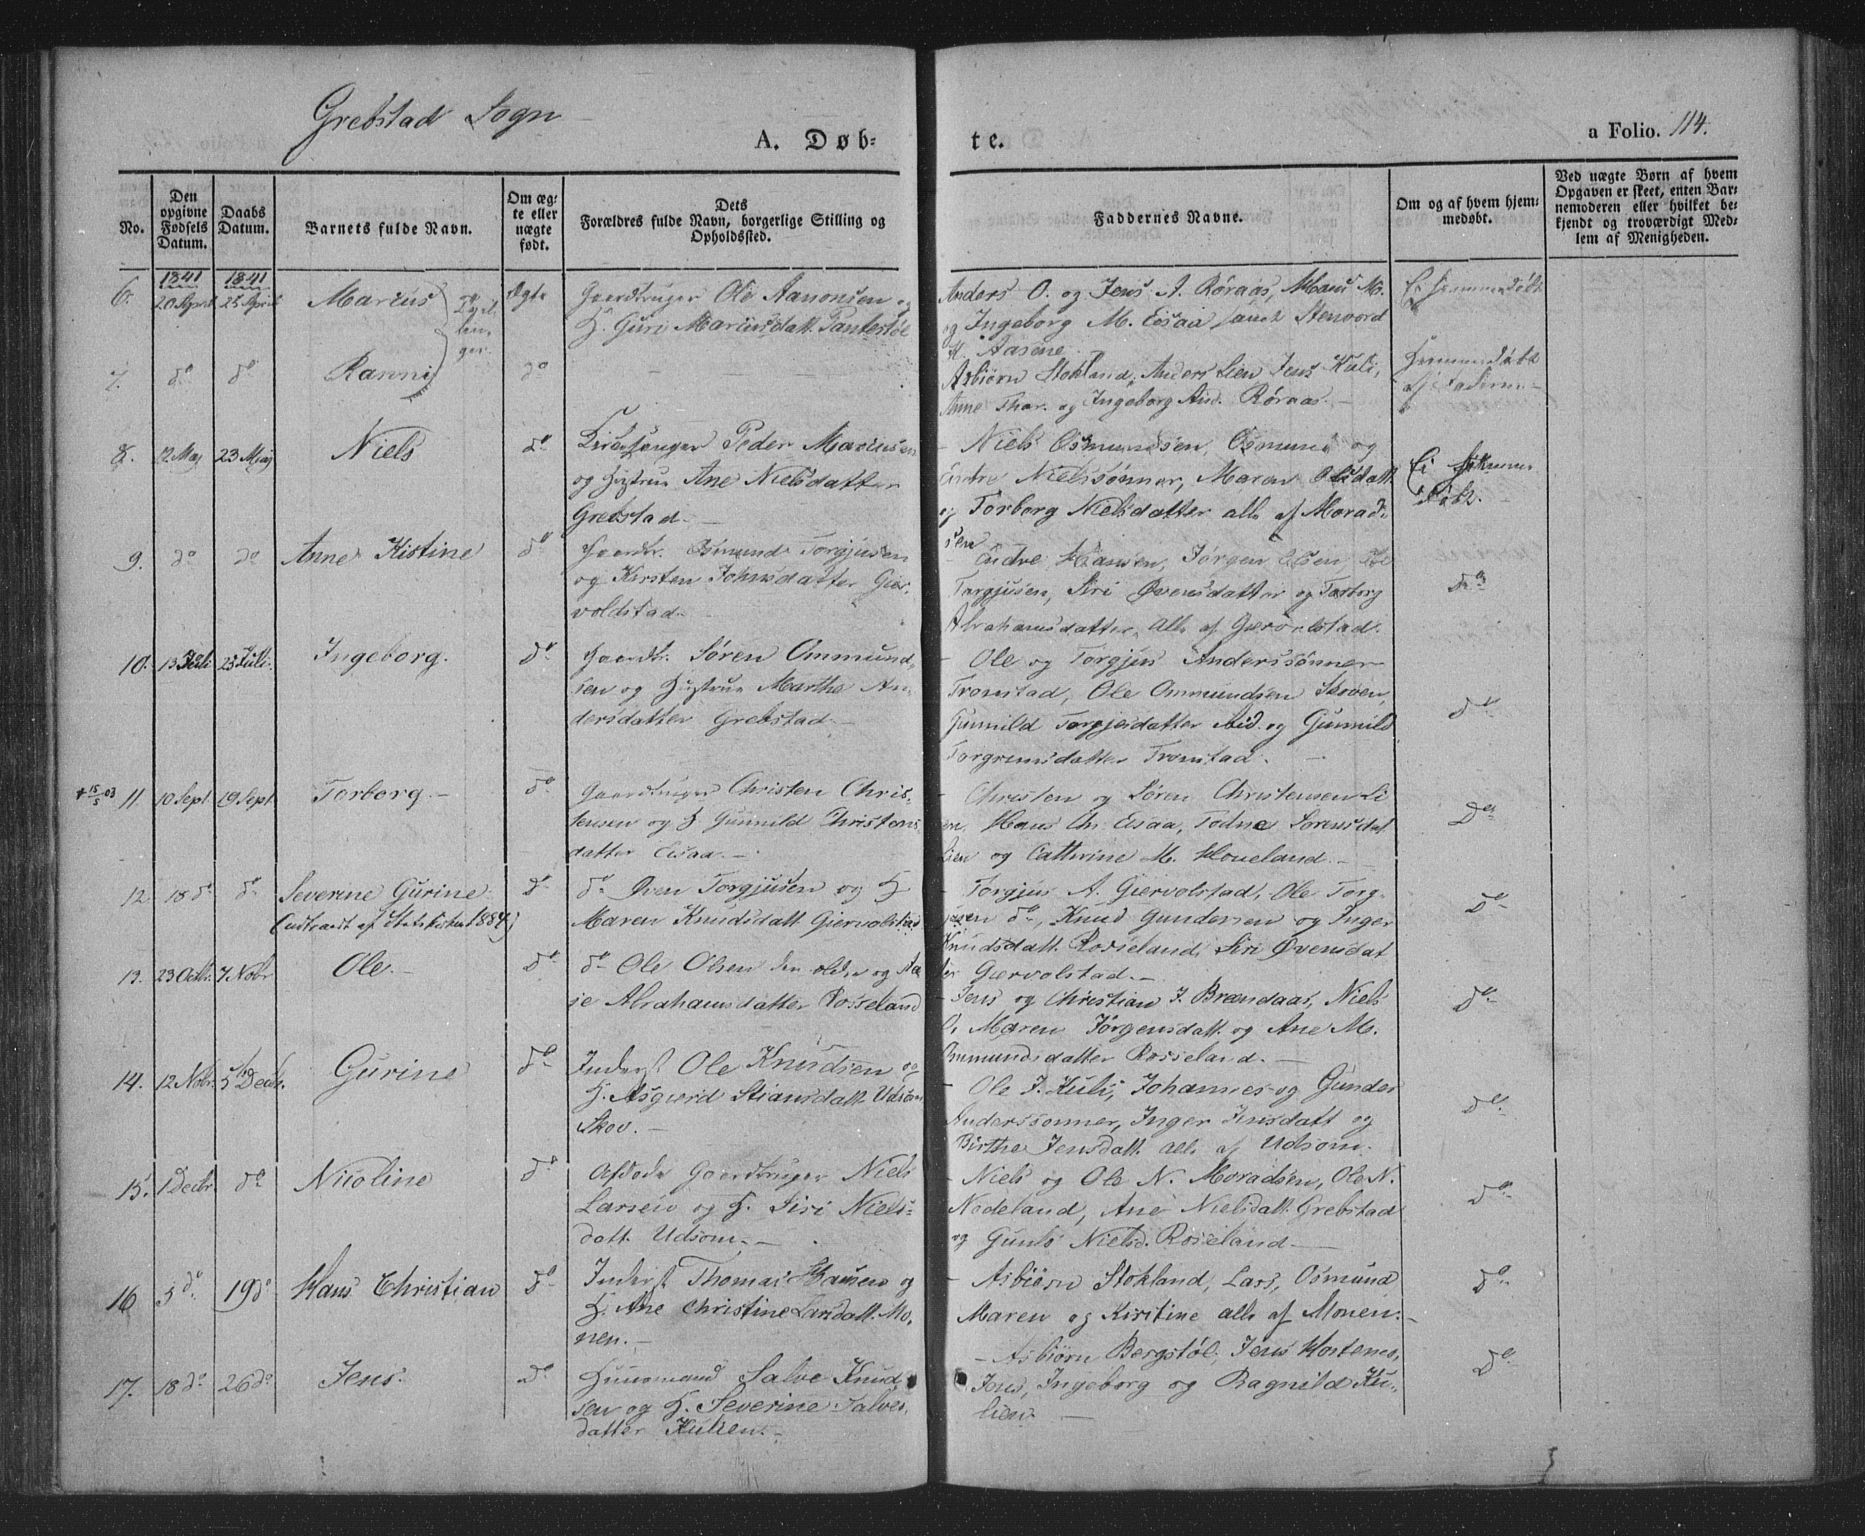 Grebstad Sogn
A. Døb-
te.
a Folio. 114.
No.
Den opgivne Fødsels Datum.
Daabs Datum.
Barnets fulde Navn.
Om ægte eller nægte født.
Dets
Forældres fulde Navn, borgerlige Stilling og
Opholdssted.
Faddernes Navne.
Om og af hvem hjem-
medøbt.
Ved nægte Børn af hvem
Opgaven er skeet, enten Bar-
nemoderen eller hvilket be-
kjendt og troværdigt Med-
lem af Menigheden.
1841 1841
6. 20 April 25 April Marius Tvillinger Ægte Gaardbruger Ole Aanonsen og
H. Guri Mariusdatt. Pantestøl
Anders O. og Jens A. Røraas, Hans M.
og Ingeborg M. Eesaa samt Stenvord
Aasene.
Ei Hjemmedøbt
7. do do Ranni do
Asbiørn Stokland, Anders Lien Jens Kuli,
Anne Thor. og Ingeborg And. Røraas.
Hjemmedøbt
8. 12 Maj 23 Maj Niels do Peder Mariusen
og Hustrue Ane Nielsdatter
Grebstad.
Niels Osmundsen, Osmund og
Endre Nielssønner, Maren Olisdatt
og Torborg Nielsdatter alle af Morad-
sen
Ei Hjemme-
døbt.
9. do do Anne Kistine do Gaardbr. Osmund Torgjusen
og Kirsten Johnsdatter Gier-
voldstad.
Endre Hansen, Jørgen Olsen,
Torgjusen, Siri Øvensdatter og Torborg
Abrahamsdatter, alle af Gjervolstad.
do
10. 13 Juli 25 Juli Ingeborg. do Gaardbr. Søren Ommund-
sen og Hustrue Marthe An-
dersdatter Grebstad.
Ole og Torgjus Anderssønner
Tromstad, Ole Ommundsen Skoen,
Gunnild Torgjeidatter ibid. og Gunnild
Torgrimsdatter Tromstad.
do
+ 15/5 03 11. 10 Sept 19 Sept Torborg. do Gaardbruger Christen Chris-
tensen og H Gunnild Christens
datter Eesaa.
Christen og Søren Christensen Li
en, Hans Chr. Eesaa, Todne Sørensdat
Lien og Cathrine M. Houeland.
do
12. 18 do do Severine Gurine
(Udtraadt af Statskirken 1884)
do do Øven Torgjusen og H
Maren Knudsdatt. Giervolstad
Torgjus A. Giervolstad, Ole Torg-
jusen do, Knud Gundersen og Inger
Knudsdatt. Rosseland, Siri Øvensdat
ter Giervolstad.
do
13. 23 Octbr. 7 Novbr Ole. do do Ole Olsen den eldre og Aa-
se Abrahamsdatter Rosseland
Jens og Christian J. Brændaas, Niels
O, Maren Jørgensdatt. og Ane M.
Ommundsdatter Rosseland.
do
14. 12 Novbr. 5 Decbr. Gurine do Inderst Ole Knudsen og
H. Asgierd Stiansdatt. Udsom
Skov.
Ole J. Kuli, Johannes og Gunder
Anderssønner, Inger Jensdatt og
Birthe Jensdatt. alle af Udsom.
do
15. 1 Decbr. do Nicoline do Afdøde Gaardbruger Niels
Larsen og H. Siri Niels-
datt. Udsom.
Niels og Ole N. Moradsen, Ole N.
Nodeland, Ane Nielsdatt. Grebstad
og Gunlo Nielsd. Rosseland.
do
16 5 do. 19 do Hans Christian do Inderst Thomas Hansen og
H. Ane Christine Larsdatt. Mo-
nen.
Asbiørn Stokland, Lars, Osmund
Maren og Kirstine alle af Monen.
do
17. 18 do 26 do Jens. do Huusmand Salve Knud
sen og H. Severine Salves
datter Kulien.
Asbiørn Bergstøl, Jens Hortenes,
Jens, Ingeborg og Ragnild Ku-
lien.
do